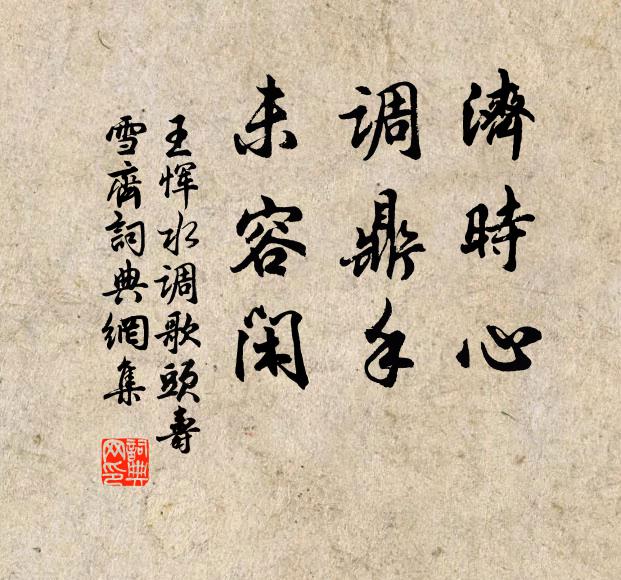 濟時心
調鼎手
未容閑
王惲水調歌頭壽
雪齊詞典網集
詞典网印